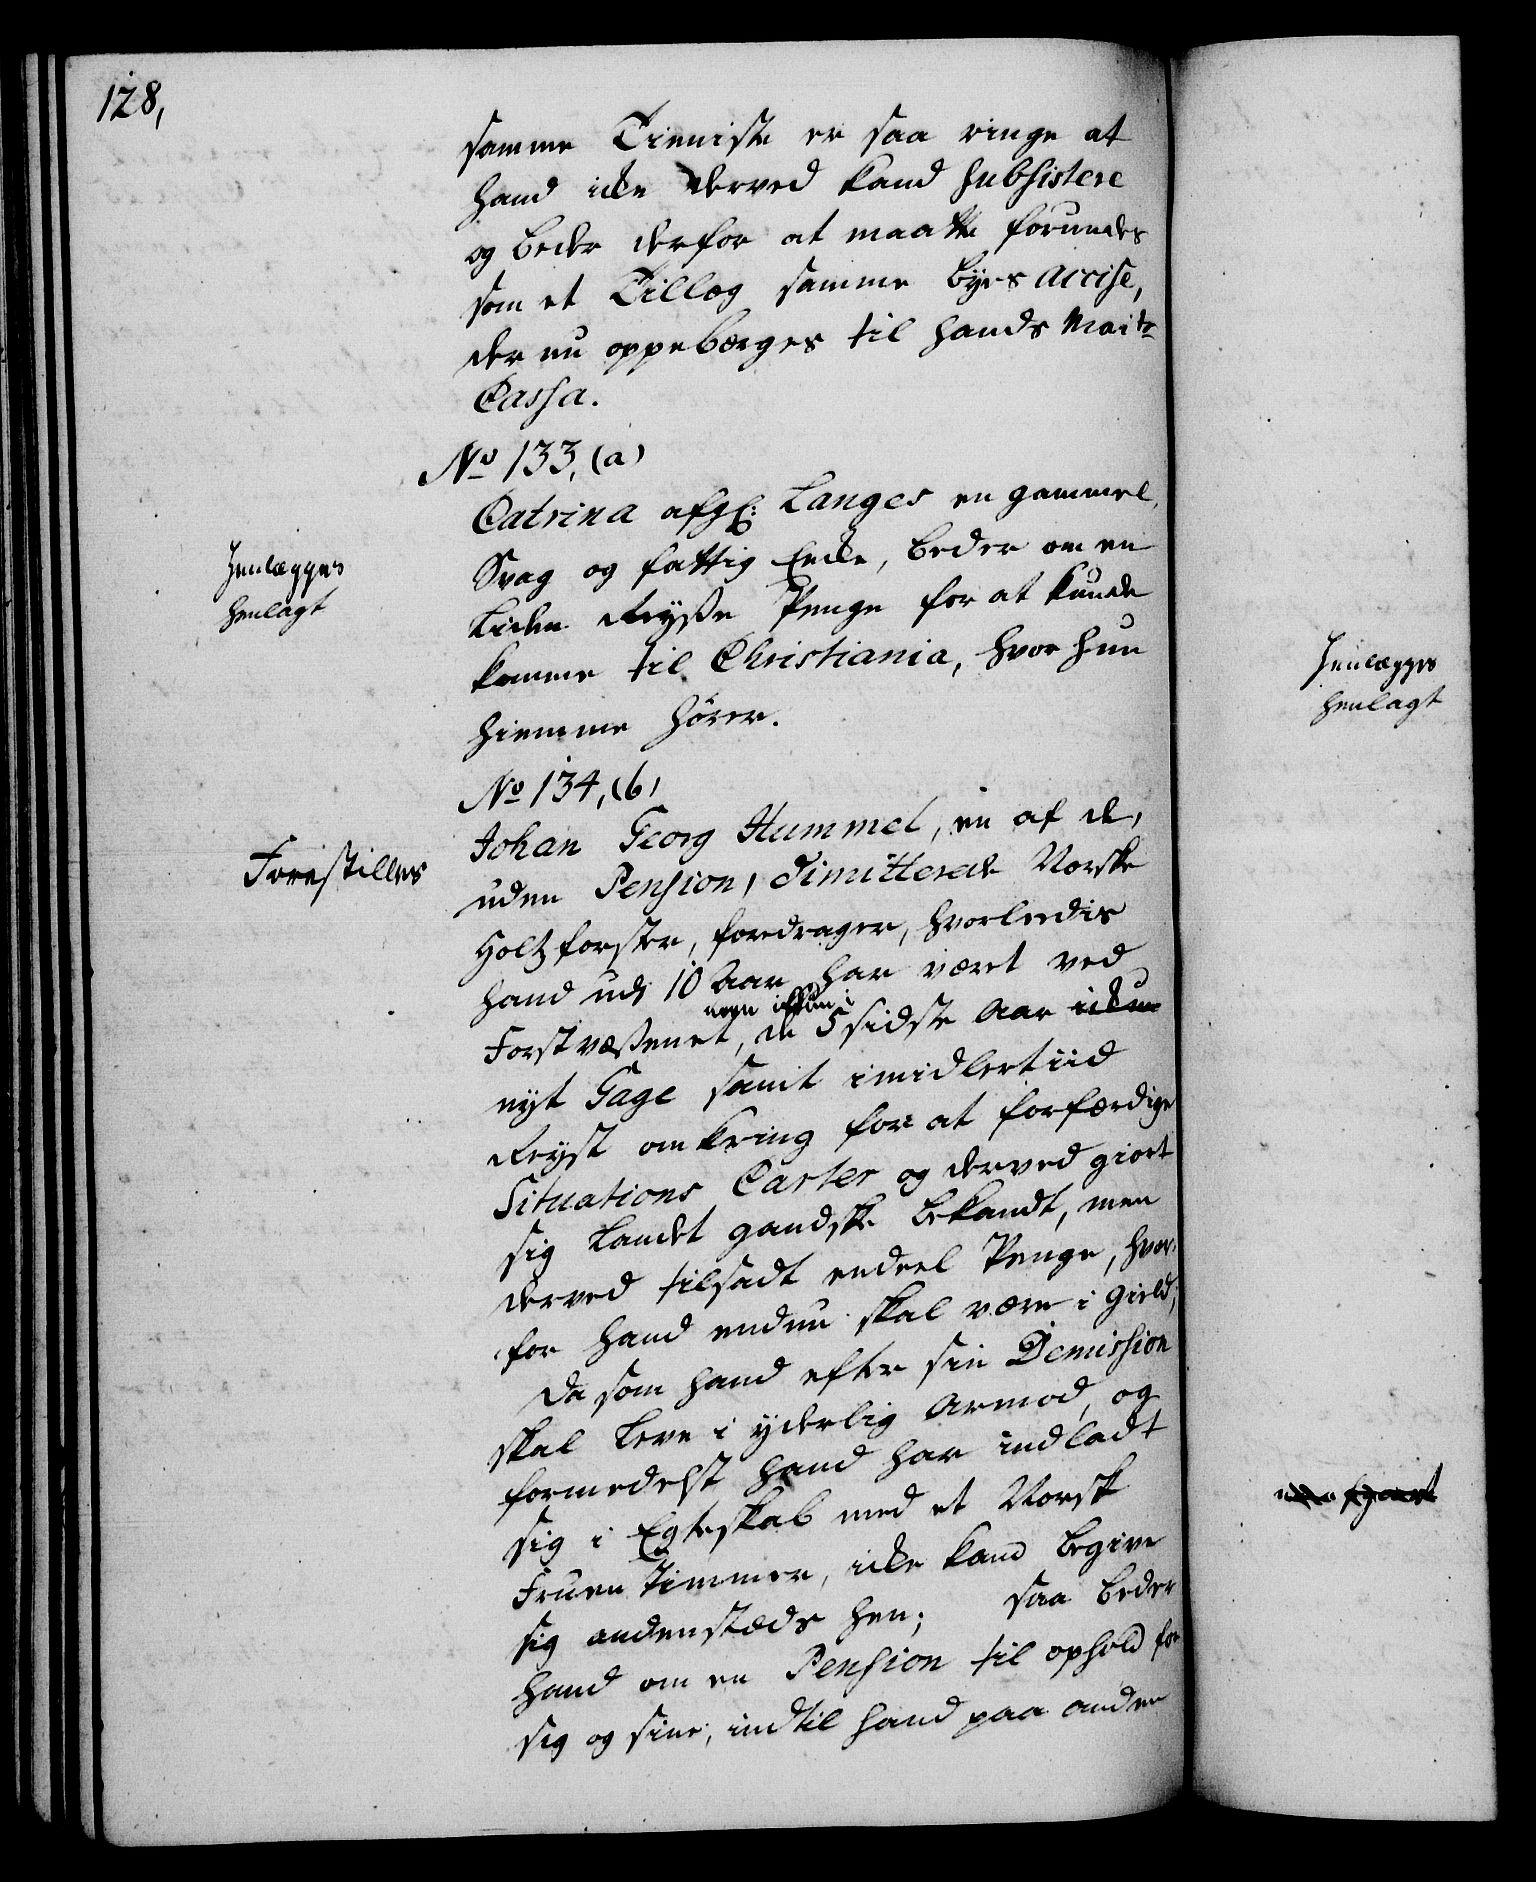 128,
samme Tieniste er saa ringe at
hand icke derved kand subsistere
og beder derfor at maatte forundes
som et Tillæg samme byes Accise,
der nu oppebærges til hands Maits
Cassa.
No 133, (a)
Catrina afg: Langes en gammel,
Svag og fattig Encke, beder om en
Henlægges
henlagt
liden Reysse Penge for at kunde
komme til Christiania, hvor hun
hiemme hører.
No 134, (b)
Johan Georg Hummel, en af de,
Forestilles
uden Pension, dimitterede Norske
Holtzforster, fordrager, hvorledis
hand udi 10 Aar har været ved
men ickun i
Forstvæssenet, de 5 sidste Aar ickun
nyt Gage samt imidlertiid
Reyst omkring for at forfærdige
Situations Carter og derved giort
sig Landet gandske bekandt, men
derved tilsadt endeel Penge, hvor-
for hand endnu skal være i Gield;
Da som hand efter sin Demission
skal leve i yderlig Armod, og
formedelst hand har indladt
sig i Egteskab med et Norsk
Fruentimmer, icke kand begive
sig andenstæds hen; saa beder
hand om en Pension til ophold for
sig og sine, indtil hand paa anden
Henlægges
henlagt